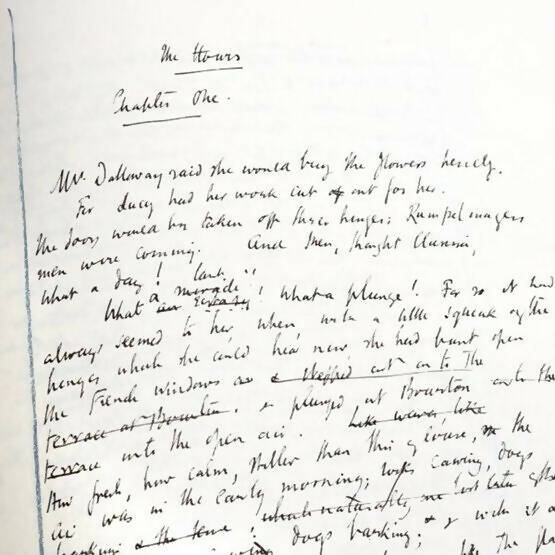 The Hours
Chapter One.
Mrs. Dalloway said she would buy the flowers herself.
For Lucy had her work cut out for her.
The doors would be taken off their hinges; Rumpelmayers
men were coming. And then, thought Clarissa,
what a day!
What a miracle! What a plunge! For so it had
always seemed to her when, with a little squeak of the
hinges which she could hear now she had burst open
the French windows & stepped out on to the
terrace at Bourton, & plunged at Bourton
terrace into the open air. Like waves; like
How fresh, how calm, stiller than this of course, the
air was in the early morning; rooks cawing, dogs
barking & the
dogs barking; & with it